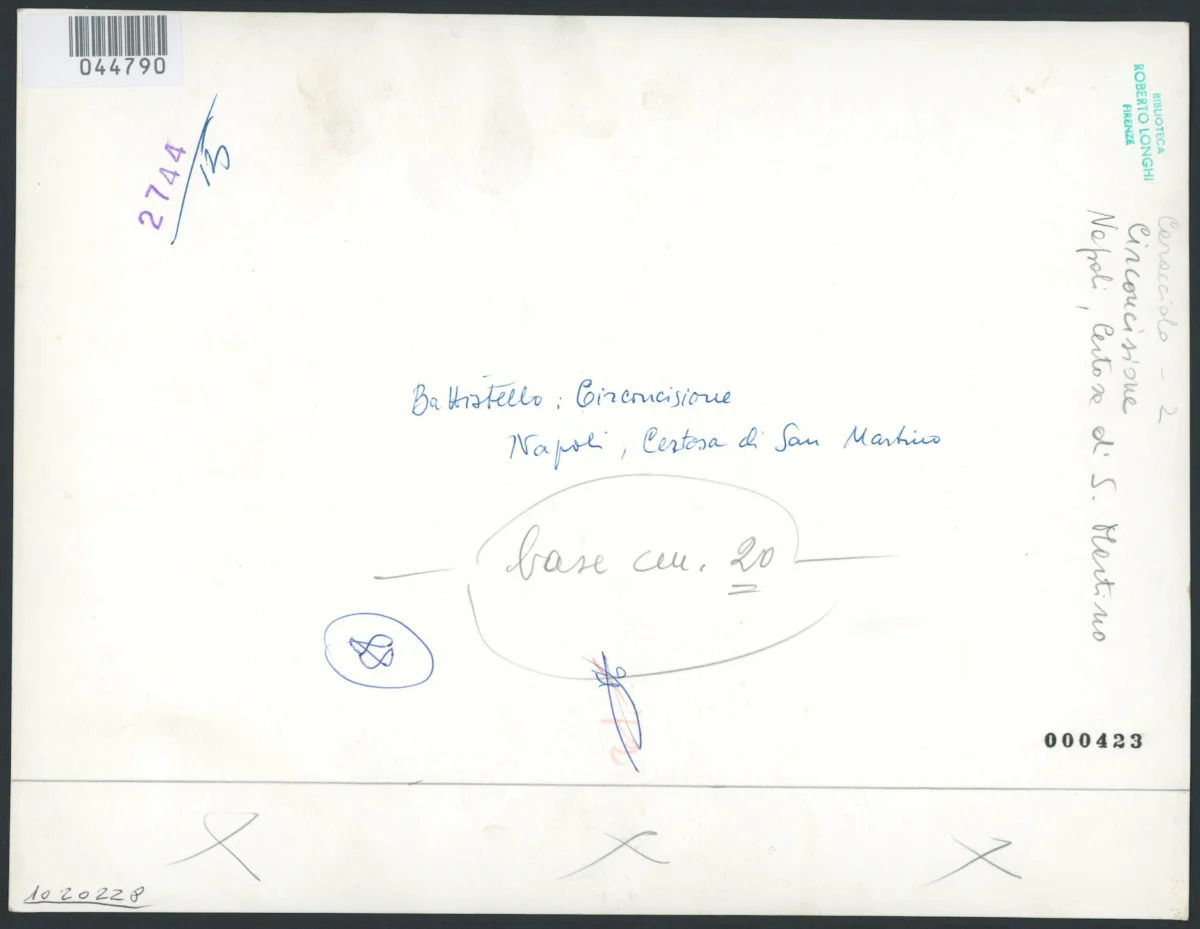 044790
2744
/13
BIBLIOTECA
ROBERTO LONGHI
FIRENZE
Caracciolo - 2
Circoncisione
Napoli, Certosa di S. Martino
Battistello: Circoncisione
Napoli, Certosa di San Martino
base cm. 20
000423
1020228